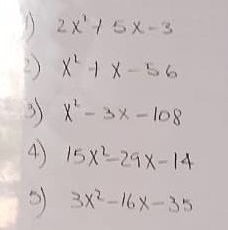 1) 2x² + 5x - 3
2) x² + x - 56
3) x² - 3x - 108
4) 15x² - 29x - 14
5) 3x² - 16x - 35